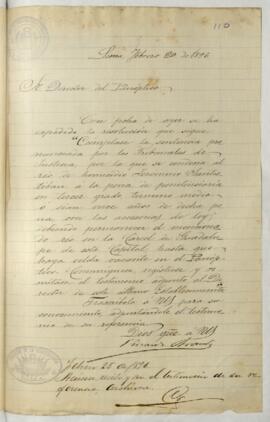 110
Lima, Febrero 20 de 1896
Sr. Director del Panóptico
Con fecha de ayer se ha
expedido la resolución que sigue
"Cúmplase la sentencia pro-
nunciada por los Tribunales de
Justicia, por la que se condena al
reo de homicidio
á la pena de penitenciaría
en tercer grado término medio
ó sean once años de dicha pe
na, con las accesorias de ley;
debiendo permanecer el mencionado
reo en la Carcel de Guadalu-
pe de esta Capital hasta que
haya celda vacante en el Panóp-
tico. Comuníquese, regístrese y re-
mítase el testimonio adjunto al Di-
rector de este último Establecimiento
Trascríbolo á US para su
conocimiento, adjuntándole el testimo-
nio de su referencia
Dios gue á US
Febrero 25 de 1896
recibo y en el testimonio de su re-
ferencia, archívese